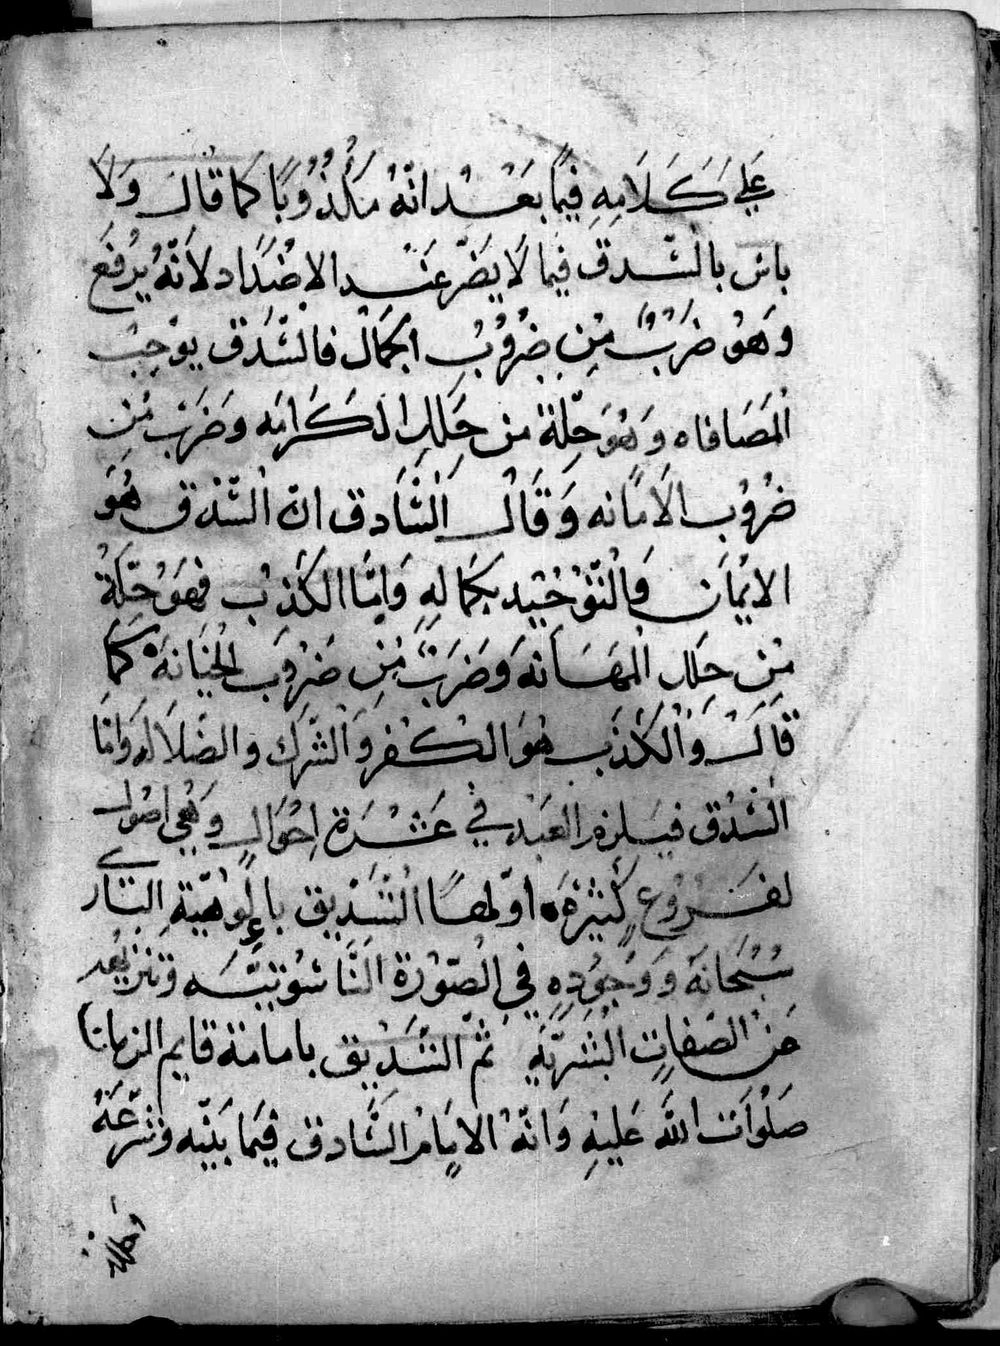 عَلي كَلَامِهِ فيمَا بَعْد انّهُ مَكْذُوبًا كما قَالَ وَلَا
باس بالسّدق فيما لَا يَضّر عنْد الاضْدَاد لاَنّهُ يُرفَع
وَهوَ ضَرَبٌ مِن ضُرُوبُ الجَمَال فالسّدَق يوْجِبُ
المَصَافاه وَهوَ حِلّة من حِلَلِ الكَرَامَه وَضَربٌ مِن
ضُرُوب الاَمَانه وَقَالَ السَّادق انّ السّدق هُوَ
الايْمَان وَالتّوْحْيد بكمَالهِ وَامّا الكَذبُ فهوَ حِلّةُ
مِن حِلَلِ المهَانَه وَضَربٌ مِن ضَرُوبَ الخيَانَه كَمَا
قَالَ وَالكَذب هوَ الكُفر وَالشّرك والضّلاَلَه وَامّا
السّدْق فيَلزم العَبْد في عَشْرَة احْوَالٍ وَهي اصُول
لفُرُوعٍ كَثيْرَة اوّلهَا السّدِيق بالوهيّةِ البَاري
سُبْحَانَه وَوجُودِهِ في الصّوْرة النَّاسُوتيَّه وتنزيهُه
عَنْ الصّفَاتِ البَشَريّةِ ثمّ السّدِيق بامامَة قايم الزمان
صَلوَات اللّه عَليْهِ وَانّهُ الامَام السَّادق فيْمَا بَيّنه وشَرّعَهُ